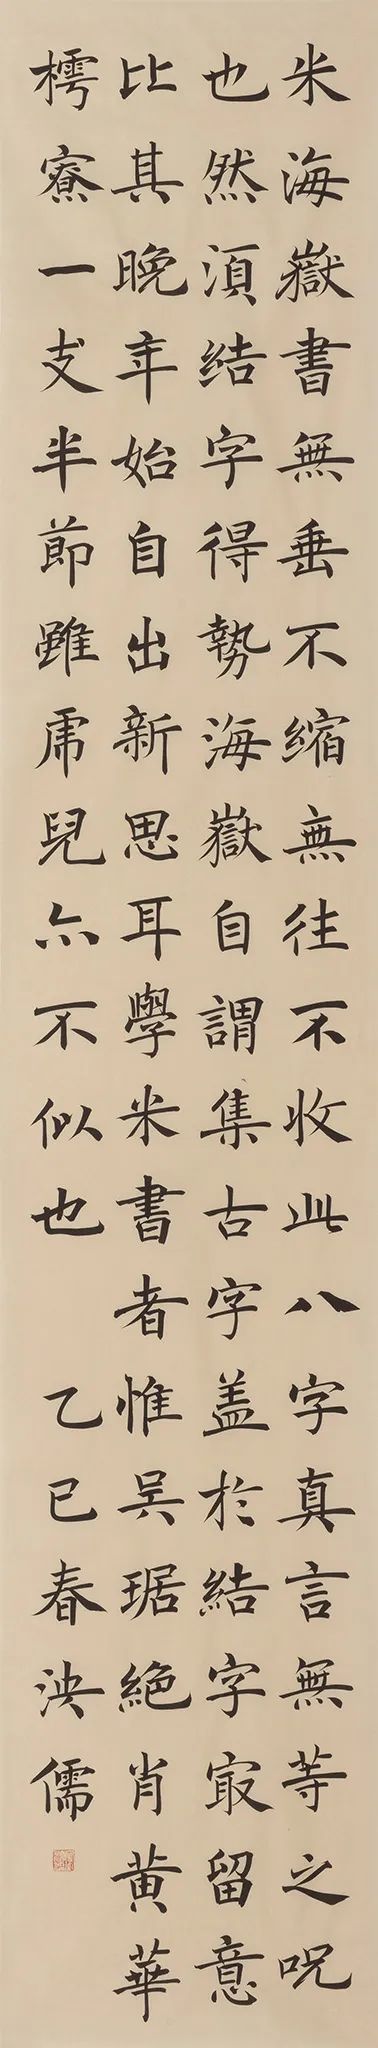 米海嶽書無垂不縮無往不收此八字真言無等之呪
也然須結字得勢海嶽自謂集古字盖於結字㝡留意
比其晚年始自出新思耳學米書者惟吴琚絕肖黃華
樗寮一支半節雖虎兒亦不似也 乙巳春泱儒